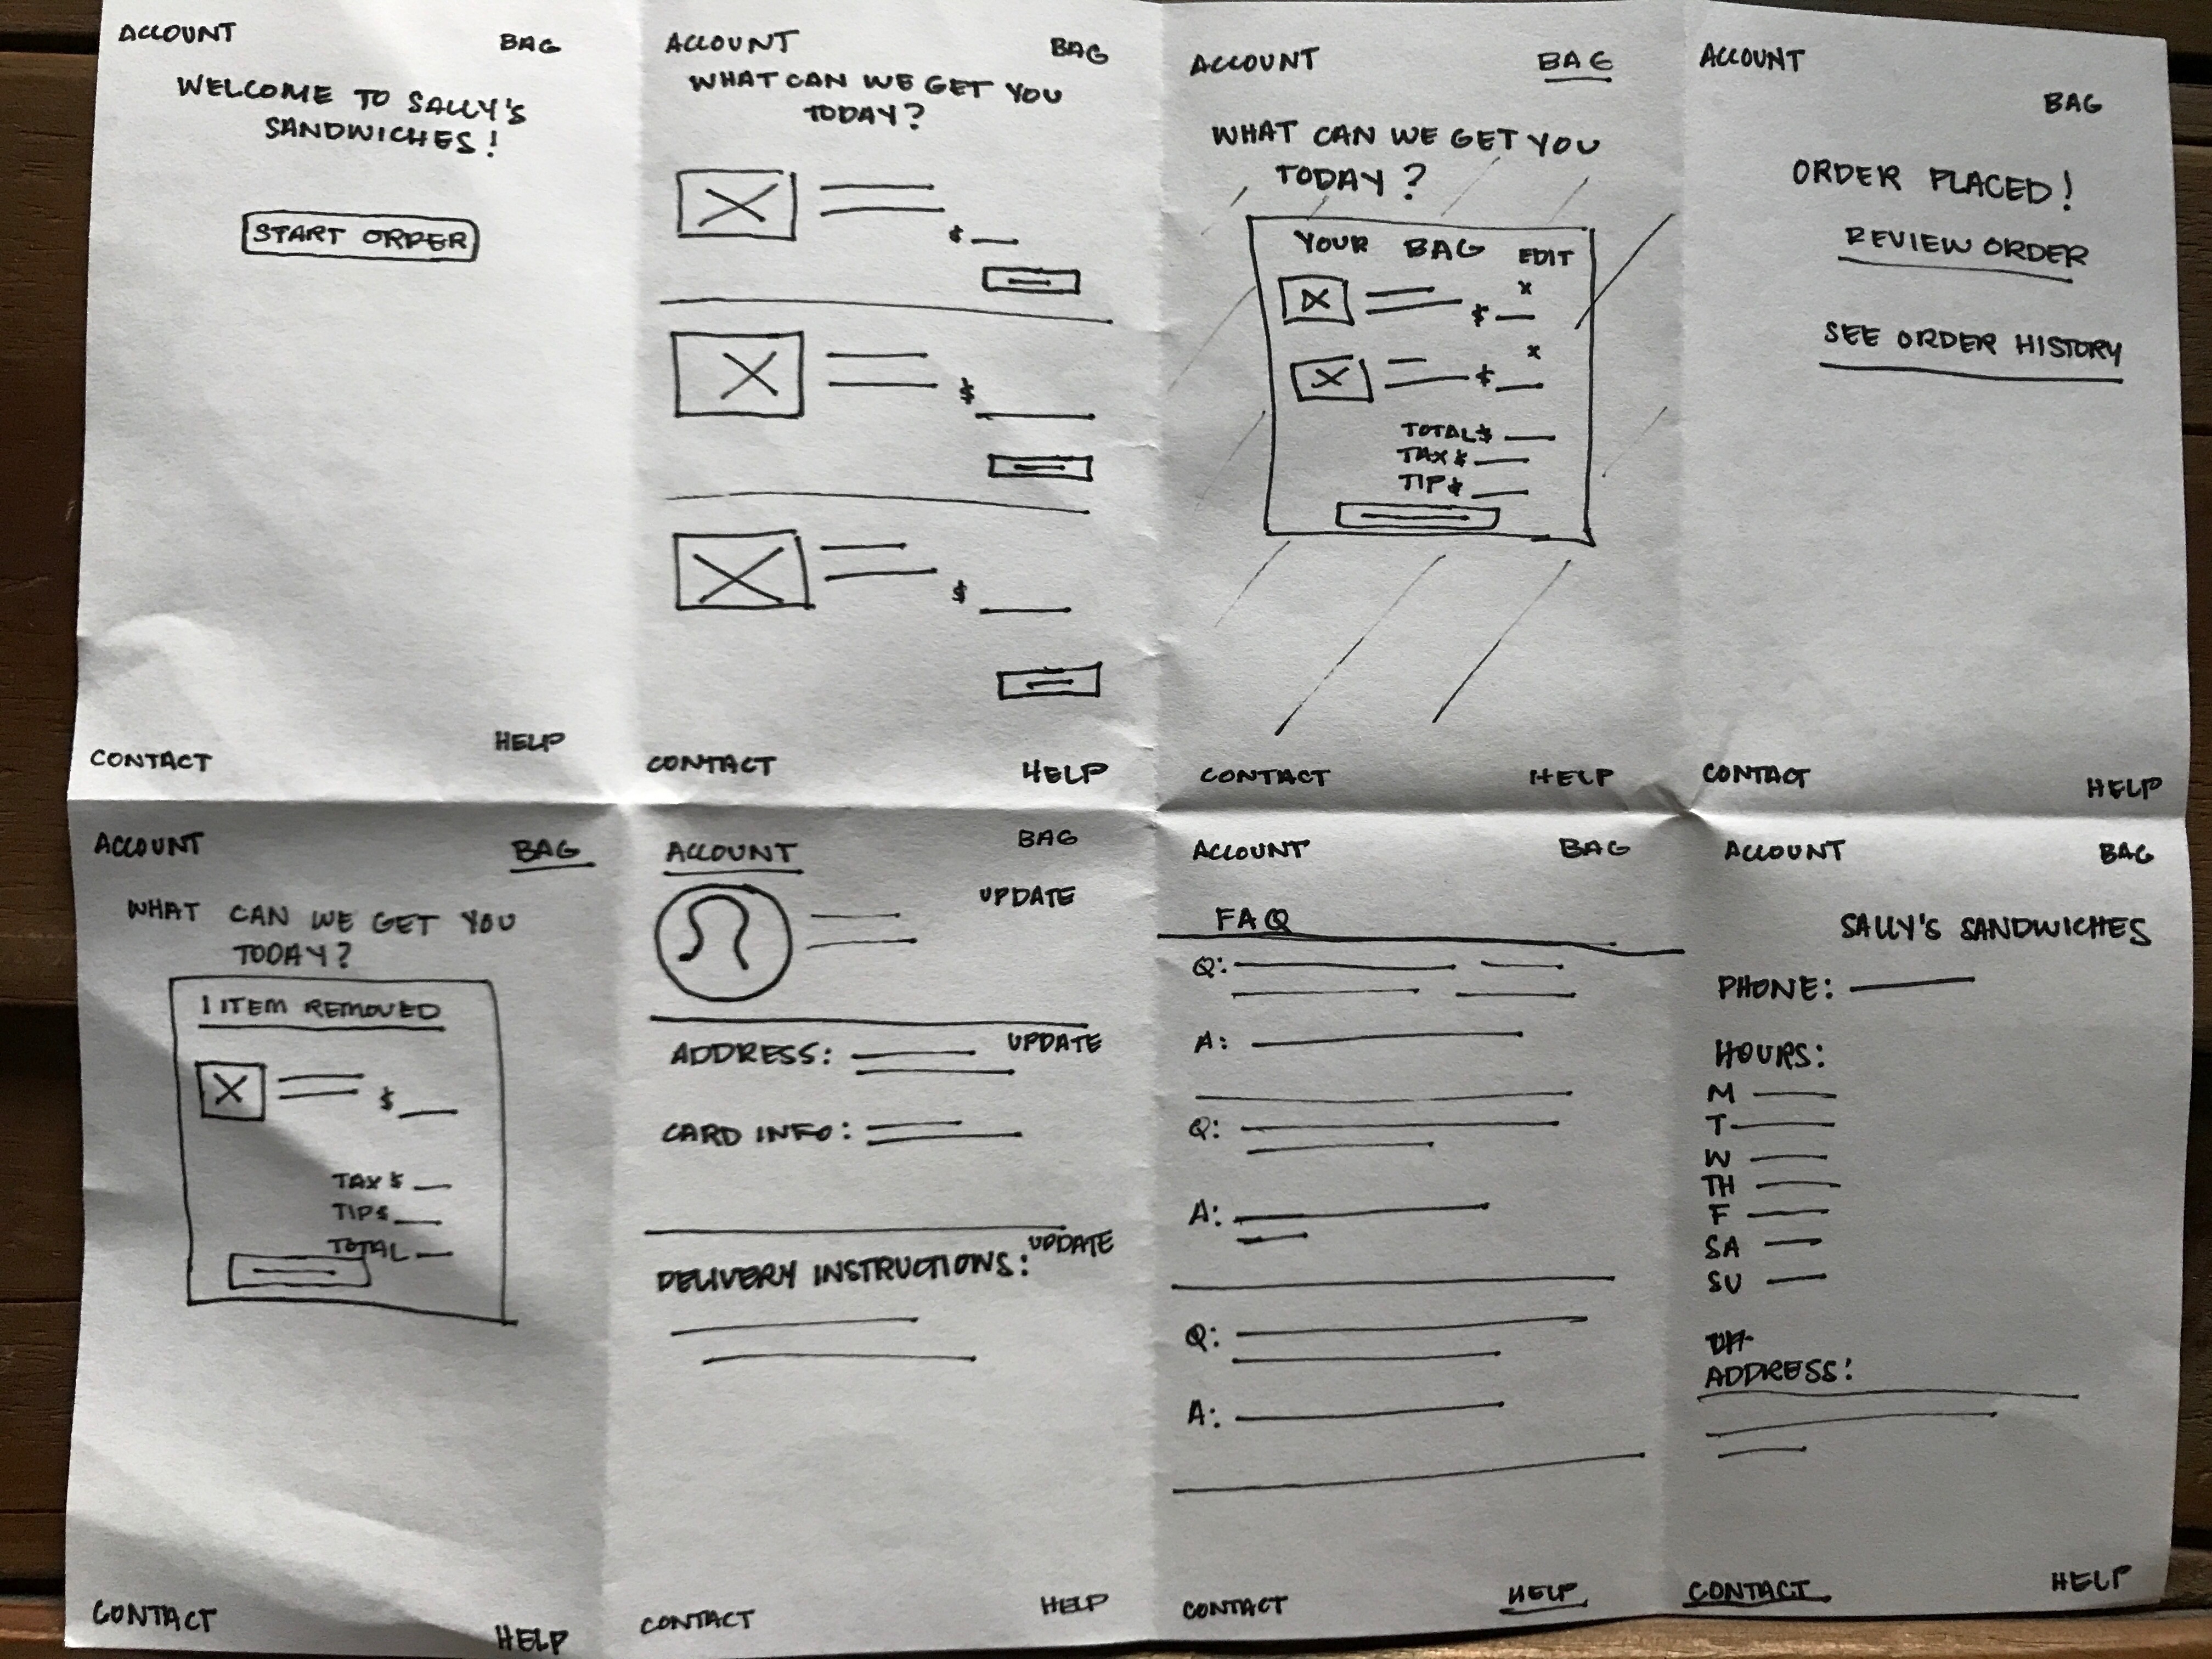 ACCOUNT
BAG
WELCOME TO SALLY'S
SANDWICHES!
START ORDER
CONTACT
HELP
ACCOUNT
BAG
WHAT CAN WE GET YOU
TODAY?
$
$
$
CONTACT
HELP
ACCOUNT
BAG
WHAT CAN WE GET YOU
TODAY?
YOUR BAG EDIT
x
$
x
$
TOTAL $
TAX $
TIP $
CONTACT
HELP
ACCOUNT
BAG
ORDER PLACED!
REVIEW ORDER
SEE ORDER HISTORY
CONTACT
HELP
ACCOUNT
BAG
WHAT CAN WE GET YOU
TODAY?
1 ITEM REMOVED
$
TAX $
TIP $
TOTAL
CONTACT
HELP
ACCOUNT
BAG
UPDATE
ADDRESS: UPDATE
CARD INFO:
UPDATE
DELIVERY INSTRUCTIONS:
CONTACT
HELP
ACCOUNT
BAG
FAQ
Q:
A:
Q:
A:
Q:
A:
CONTACT
HELP
ACCOUNT
BAG
SALLY'S SANDWICHES
PHONE:
HOURS:
M
T
W
TH
F
SA
SU
ADDRESS:
CONTACT
HELP